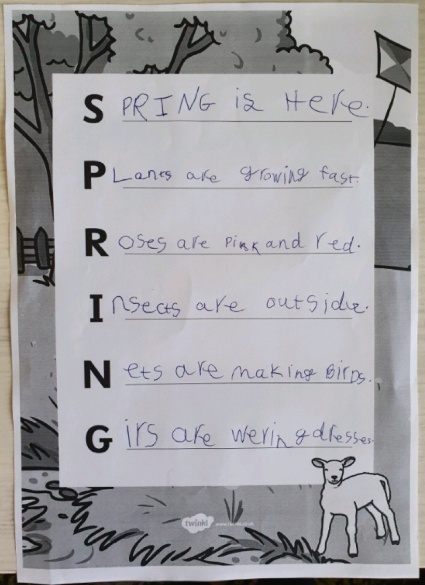 SPRING is Here.
PLants are growing fast.
Roses are pink and red.
Insects are outside.
Nets are making Birds.
Girs are wering dresses.
twinkl www.twinkl.co.uk